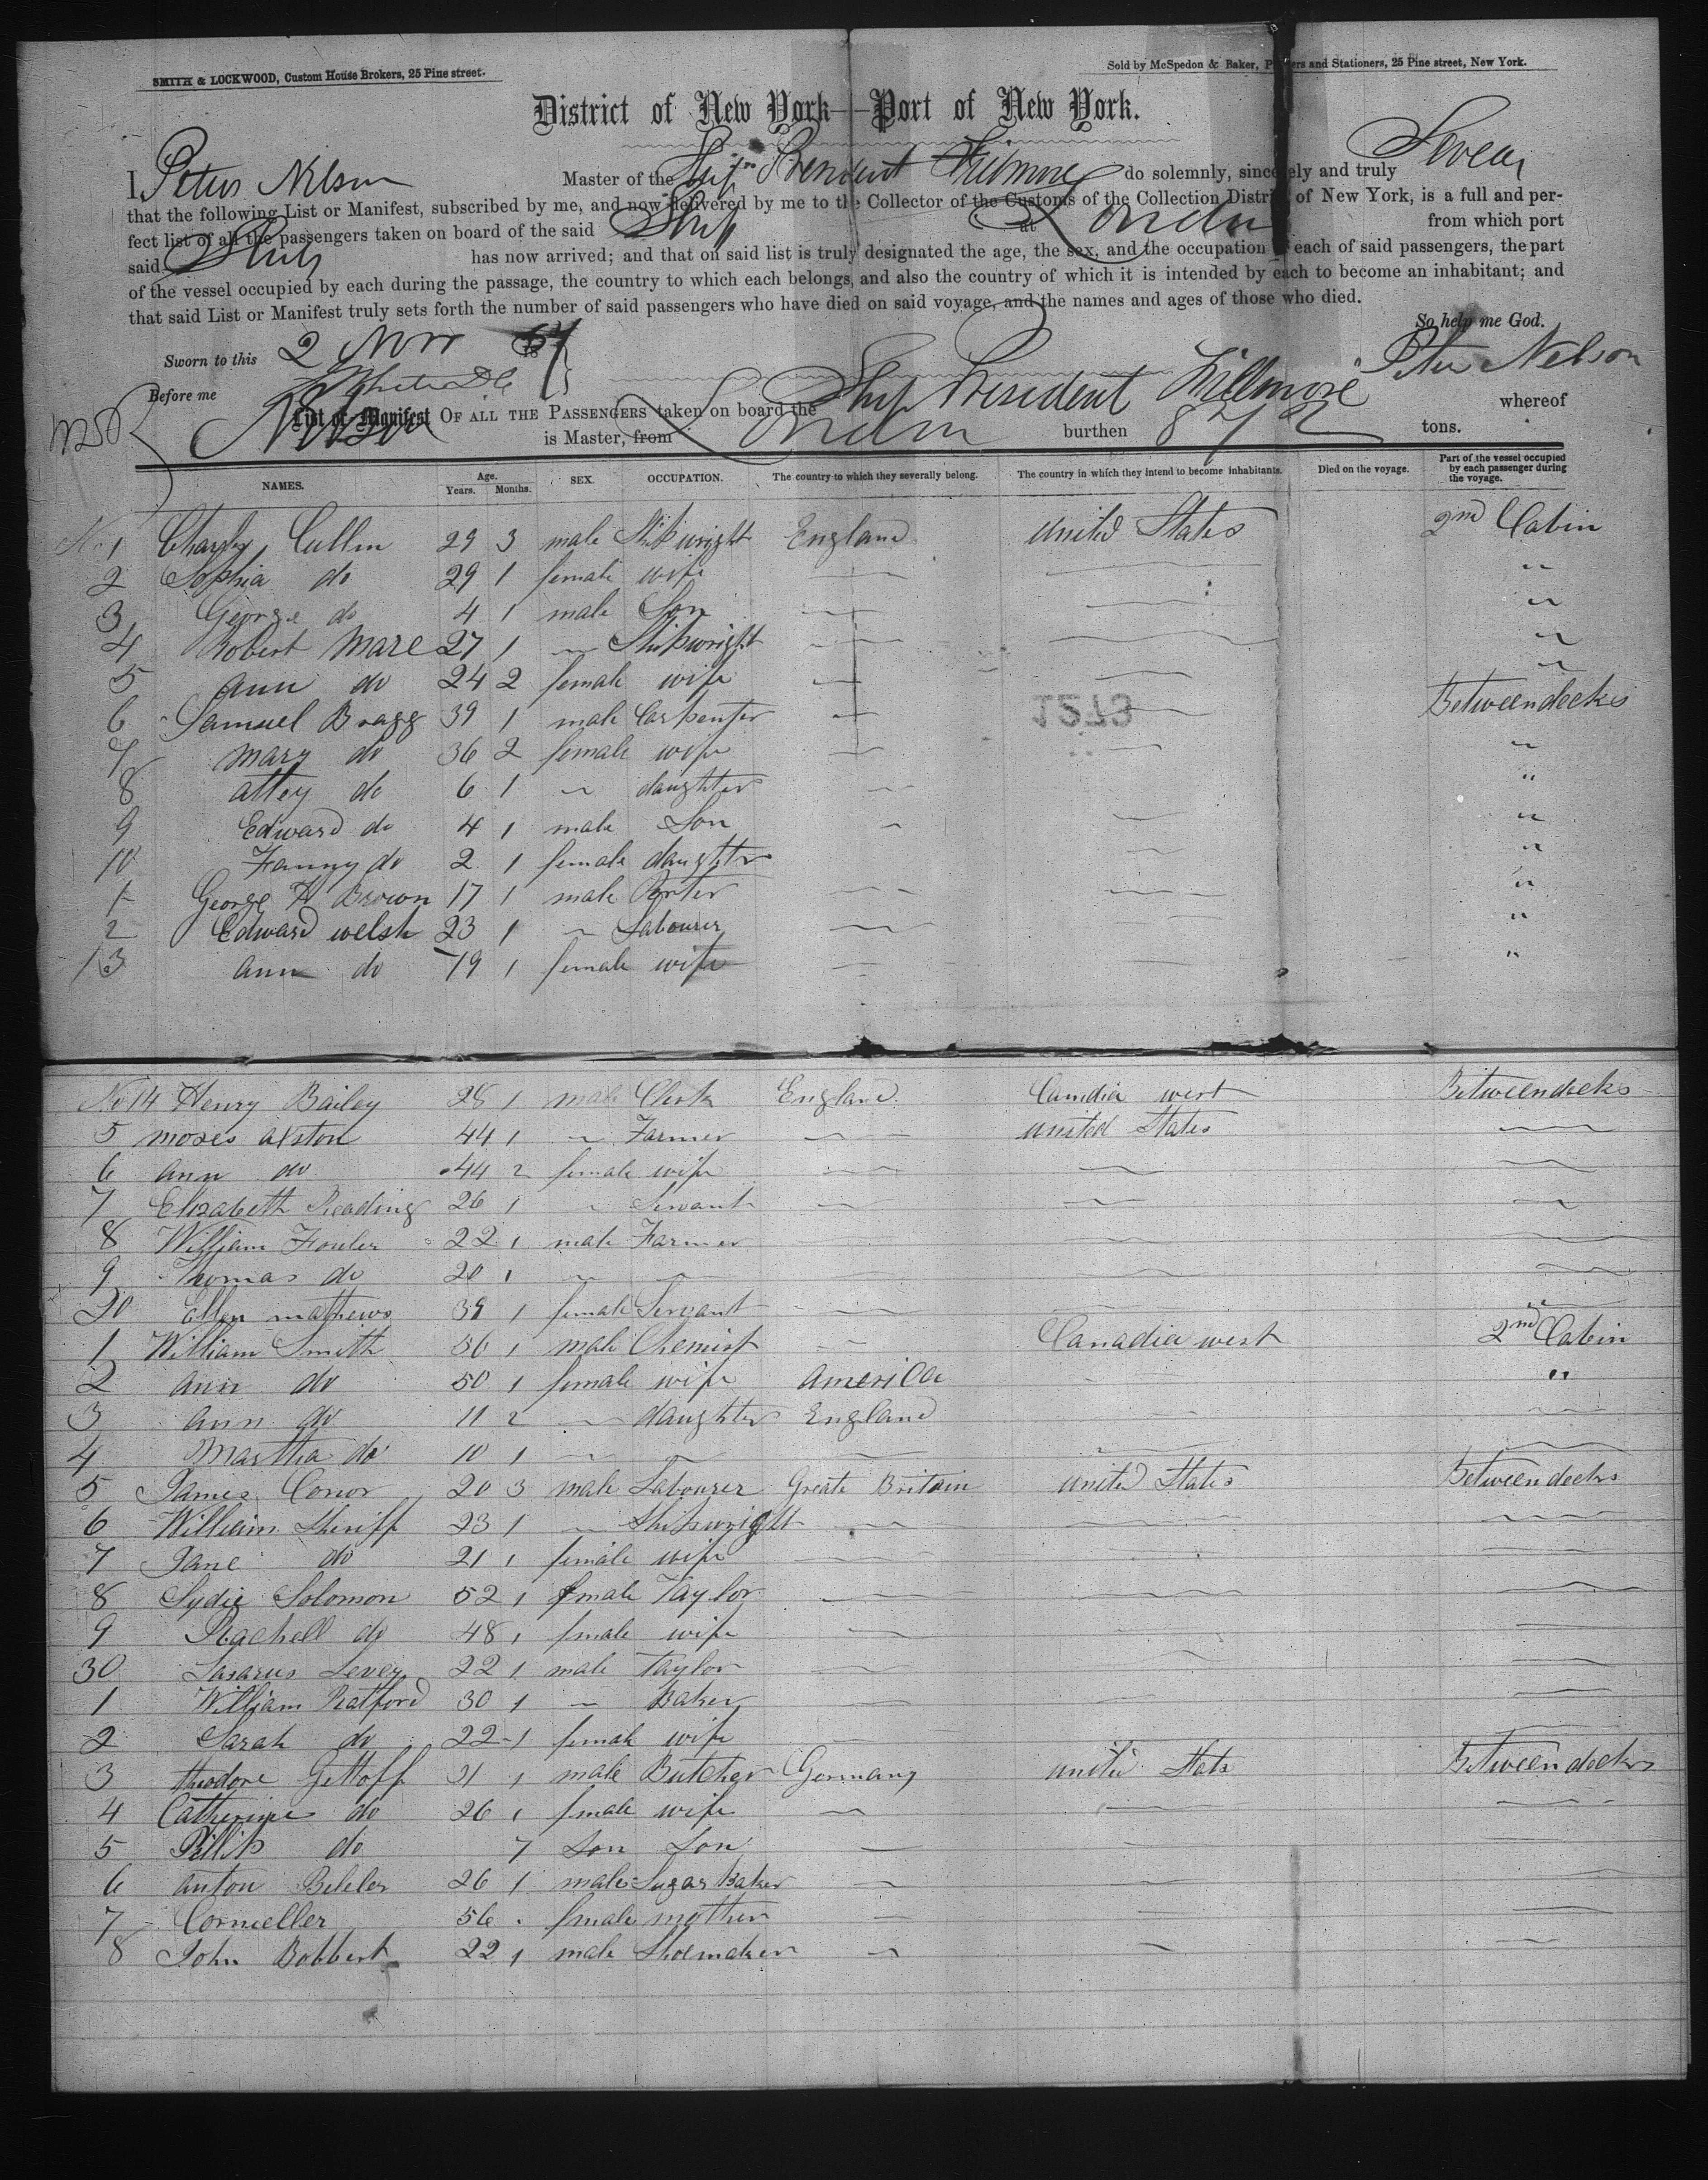 SMITH & LOCKWOOD, Custom House Brokers, 25 Pine street.
Sold by McSpedon & Baker, Printers and Stationers, 25 Pine street, New York.
District of New York—Port of New York.
I Peter Nelson Master of the Ship President Fillmore do solemnly, sincerely and truly Swear
that the following List or Manifest, subscribed by me, and now delivered by me to the Collector of the Customs of the Collection District of New York, is a full and per-
fect list of all the passengers taken on board of the said Ship at London from which port
said Ship has now arrived; and that on said list is truly designated the age, the sex, and the occupation of each of said passengers, the part
of the vessel occupied by each during the passage, the country to which each belongs, and also the country of which it is intended by each to become an inhabitant; and
that said List or Manifest truly sets forth the number of said passengers who have died on said voyage, and the names and ages of those who died.
So help me God.
Sworn to this 2 Nov 18 Peter Nelson
Before me
List or Manifest OF ALL THE PASSENGERS taken on board the Ship President Fillmore whereof
Nelson is Master, from London burthen 872 tons.
NAMES. Age. Years. Months. SEX. OCCUPATION. The country to which they severally belong. The country in which they intend to become inhabitants. Died on the voyage. Part of the vessel occupied by each passenger during the voyage.
No 1 Charles Cullen 29 3 male Shipwright England United States 2nd Cabin
2 Sophia do 29 1 female wife "
3 George do 4 1 male Son "
4 Robert Mare 27 1 " Shipwright "
5 Ann do 24 2 female wife "
6 Samuel Bragg 39 1 male Carpenter Betweendecks
1273
7 mary do 36 2 female wife "
8 attey do 6 1 " daughter "
9 Edward do 4 1 male Son "
10 Fanny do 2 1 female daughter "
1 George H Brown 17 1 male Porter "
2 Edward welsh 23 1 " Labourer "
13 ann do 19 1 female wife "
No 14 Henry Bailey 28 1 male Clerk England Candia west Betweendecks
5 moses alston 44 1 " Farmer " United States
6 ann do 44 2 female wife
7 Elizabeth Reading 26 1 " Servant
8 William Fouler 22 1 male Farmer
9 Thomas do 20 1 "
20 Ellen mathews 39 1 female Servant
1 William Smith 50 1 male Chemist Canadia west 2nd Cabin
2 ann do 50 1 female wife America "
3 ann do 11 2 " daughter England
4 Martha do 10 1 "
5 James Conor 20 3 male Labourer Greate Britain United States Betweendecks
6 William Sheriff 23 1 " Shipwright
7 Jane do 21 1 female wife
8 Solomon 52 1 male Taylor
9 Rachell do 48 1 female wife
30 Lasarus Levey 22 1 male Taylor
1 William Ratford 30 1 " Baker
2 Sarah do 22 1 female wife
3 theodore Gettoff 31 1 male Butcher Germany United State Betweendecks
4 Catherine do 26 1 female wife
5 Pillip do 7 Son Son
6 anton 26 1 male Sugar Baker
7 56 female mother
8 John Bobbert 22 1 male Shoemaker